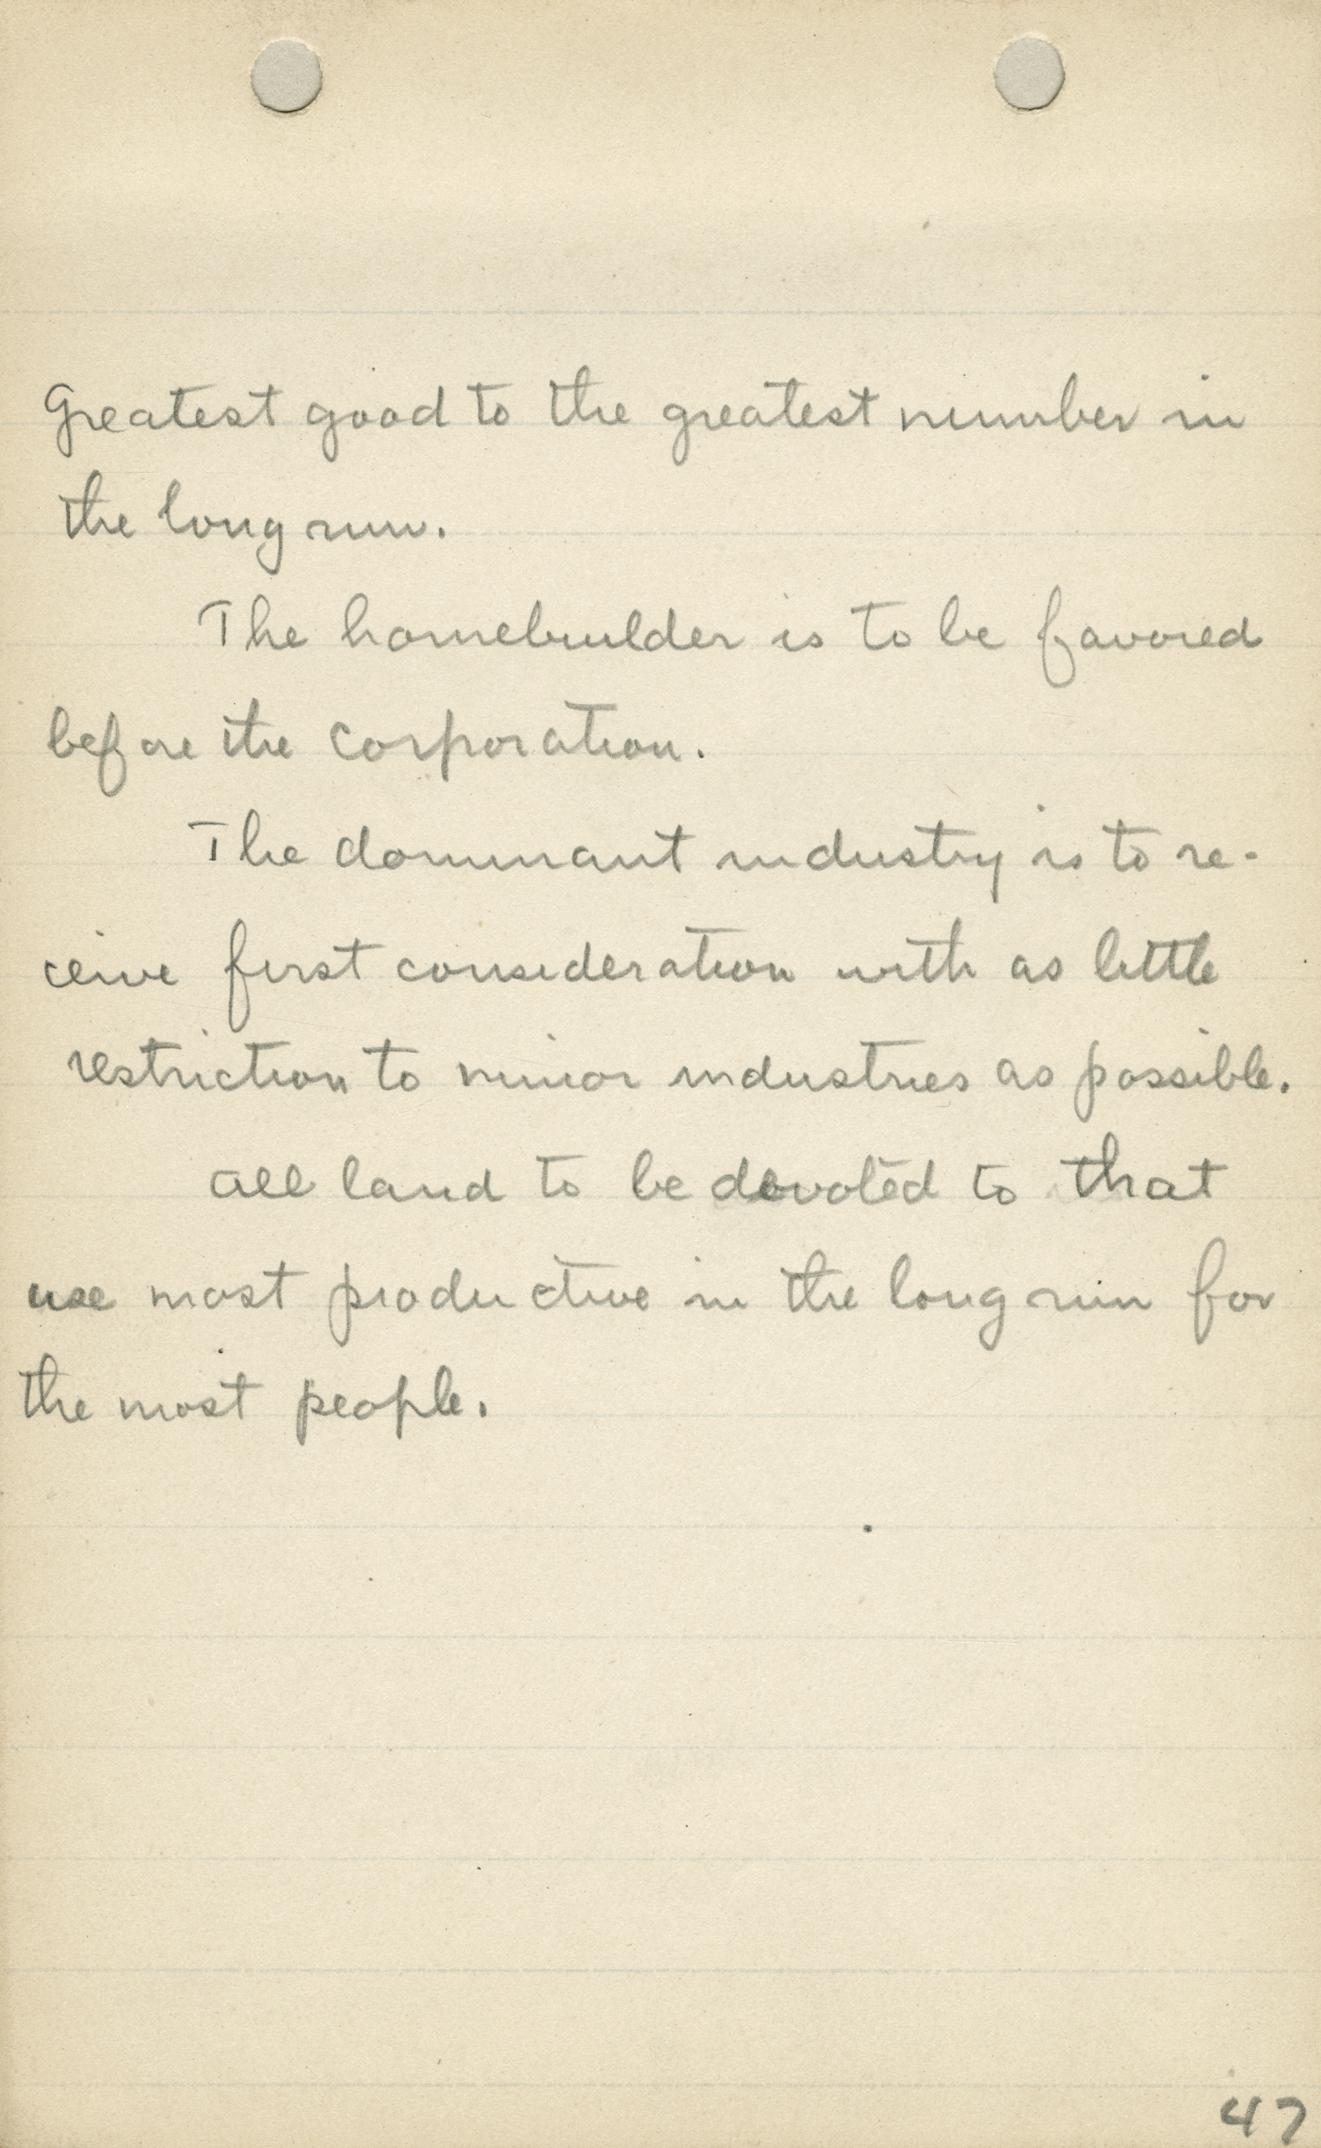 Greatest good to the greatest number in
the long run.
The homebuilder is to be favored
before the corporation.
The dominant industry is to re-
ceive first consideration with as little
restriction to minor industries as possible.
All land to be devoted to that
use most productive in the long run for
the most people.
47